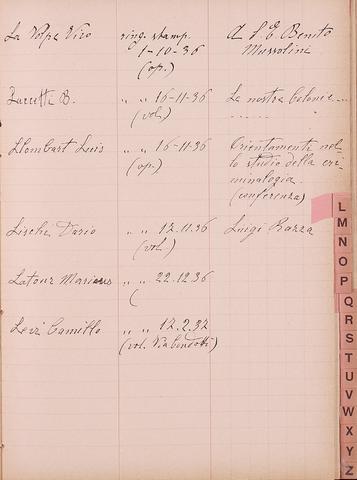 La Volpe Vico ring. stamp. A S. E. Benito
1-10-36 Mussolini
(op.)
B. " " 16-11-36 Le nostre Colonie...
(vol.)
Llombart Luis " " 16-11-36 Orientamenti nel
(op.) lo studio della cri
minologia.
(conferenza)
Lischi Dario " " 17.11.36 Luigi Razza
(vol.)
Latour Marius " " 22.12.36
(
Levi Camillo " " 12.2.37
(vol.
L
M
N
O
P
Q
R
S
T
U
V
W
X
Y
Z